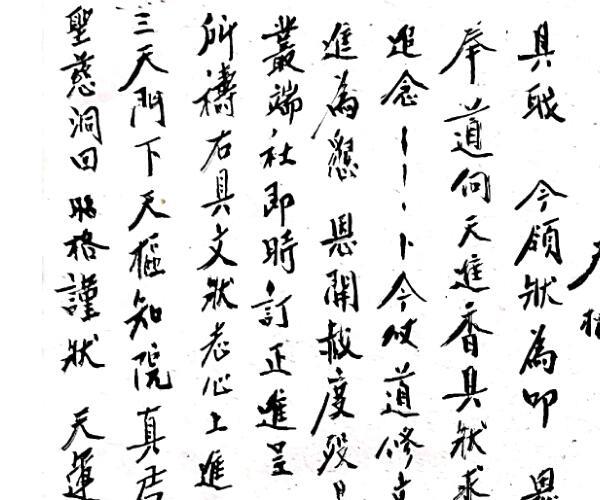 具职 今領狀為叩 恩
奉道向天進香具狀求
追念 卜今仗道修
進為懇 恩開赦度殁
叢端社即時訂正進呈
所禱右具文狀志心上進
三天門下天樞知院真君
聖慈洞回昭格謹狀 天運